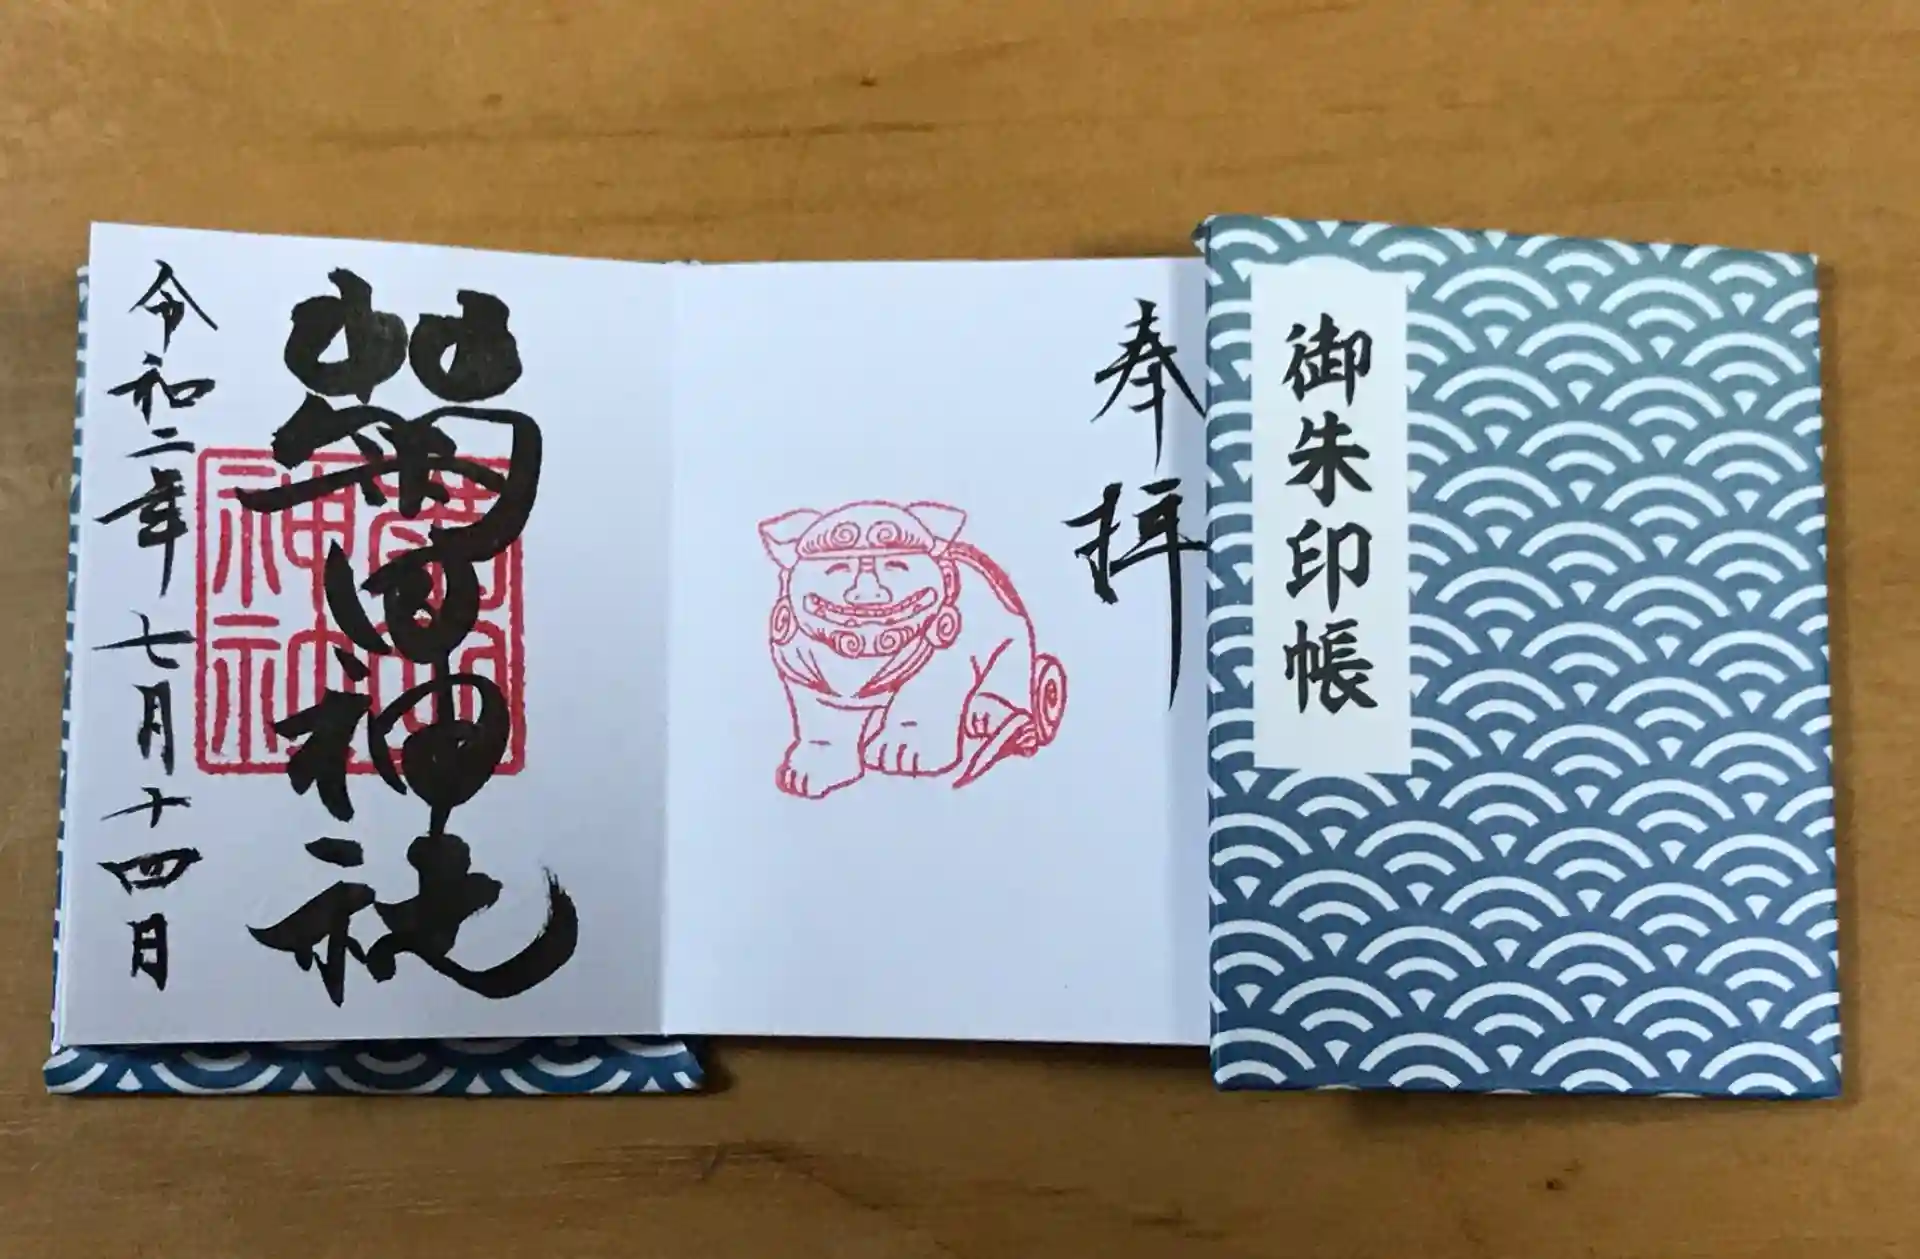 御朱印帳
奉拝
菊田神社
令和二年七月十四日